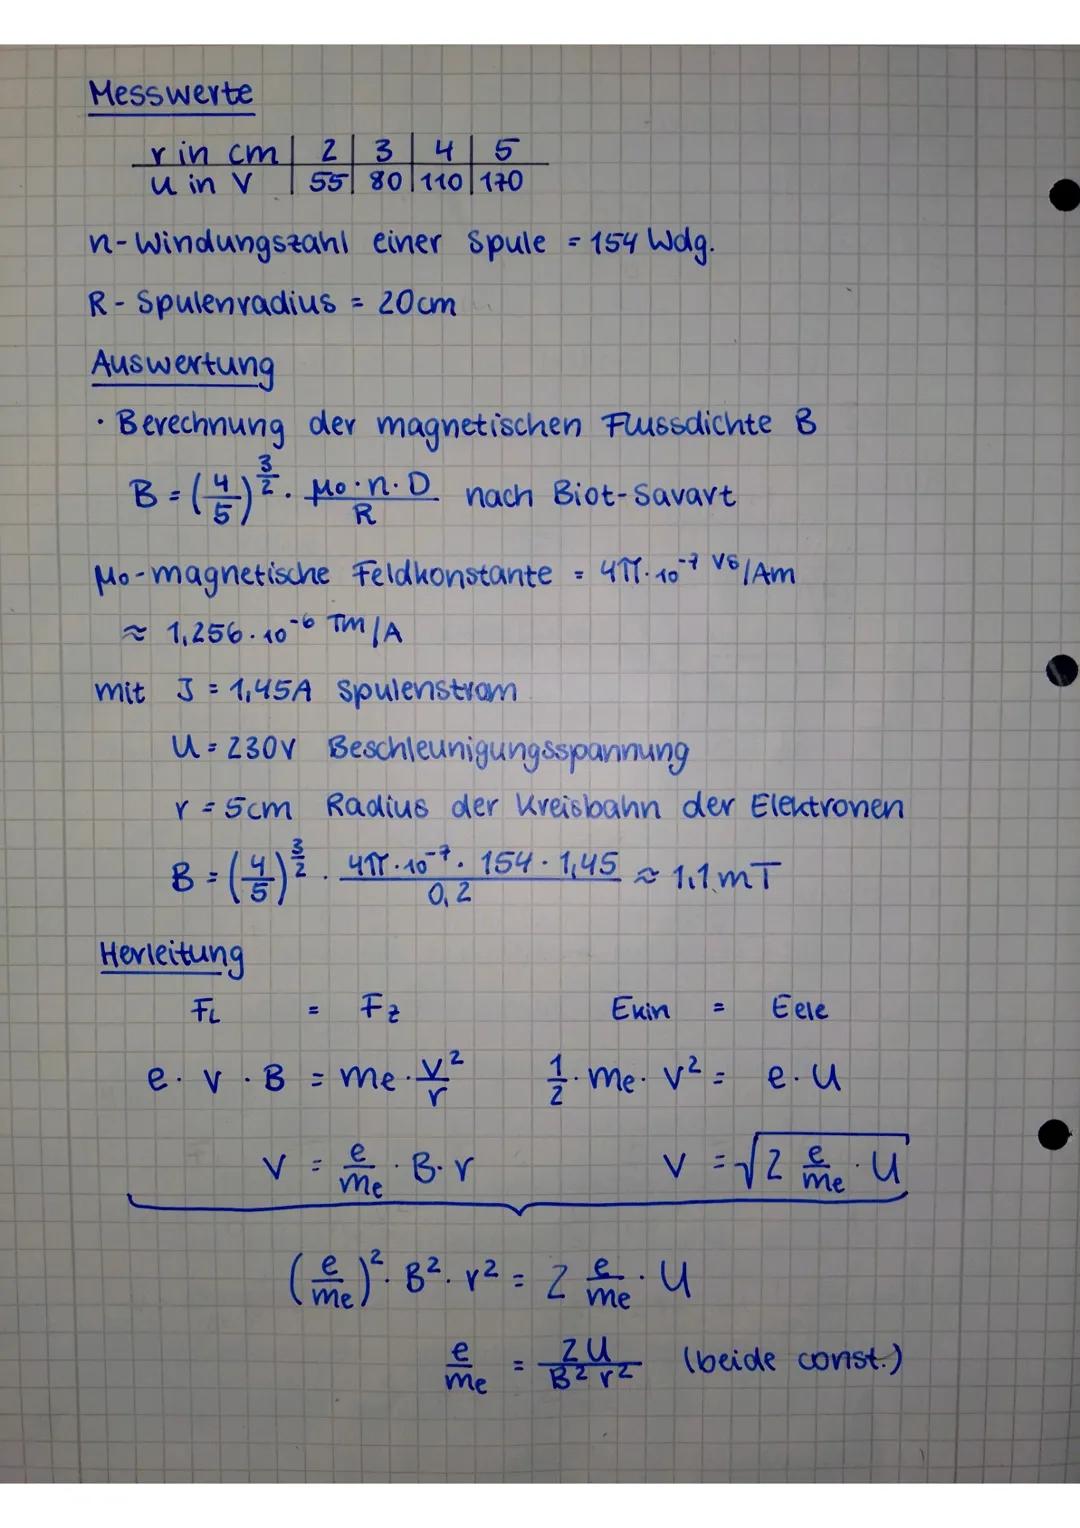 Messwerte
r in cm | 2 | 3 | 4 | 5
U in V | 55 | 80 | 110 | 170
n-Windungszahl einer Spule = 154 Wdg.
R - Spulenradius = 20cm
Auswertung
· Berechnung der magnetischen Flussdichte B
B = (4/5)^(3/2) · μ₀·n·D/R nach Biot-Savart
μ₀-magnetische Feldkonstante = 4π·10⁻⁷ Vs/Am
≈ 1,256·10⁻⁶ Tm/A
mit J = 1,45A Spulenstrom
U = 230V Beschleunigungsspannung
r = 5cm Radius der Kreisbahn der Elektronen
B = (4/5)^(3/2) · 4π·10⁻⁷·154·1,45/0,2 ≈ 1,1 mT
Herleitung
FL = Fz Ekin = Eele
e · v · B = me · v²/r 1/2 · me · v² = e · U
v = e/me · B · r v = √(2 e/me · U)
(e/me)² · B² · r² = 2 e/me · U
e/me = 2U/B² r² (beide const.)